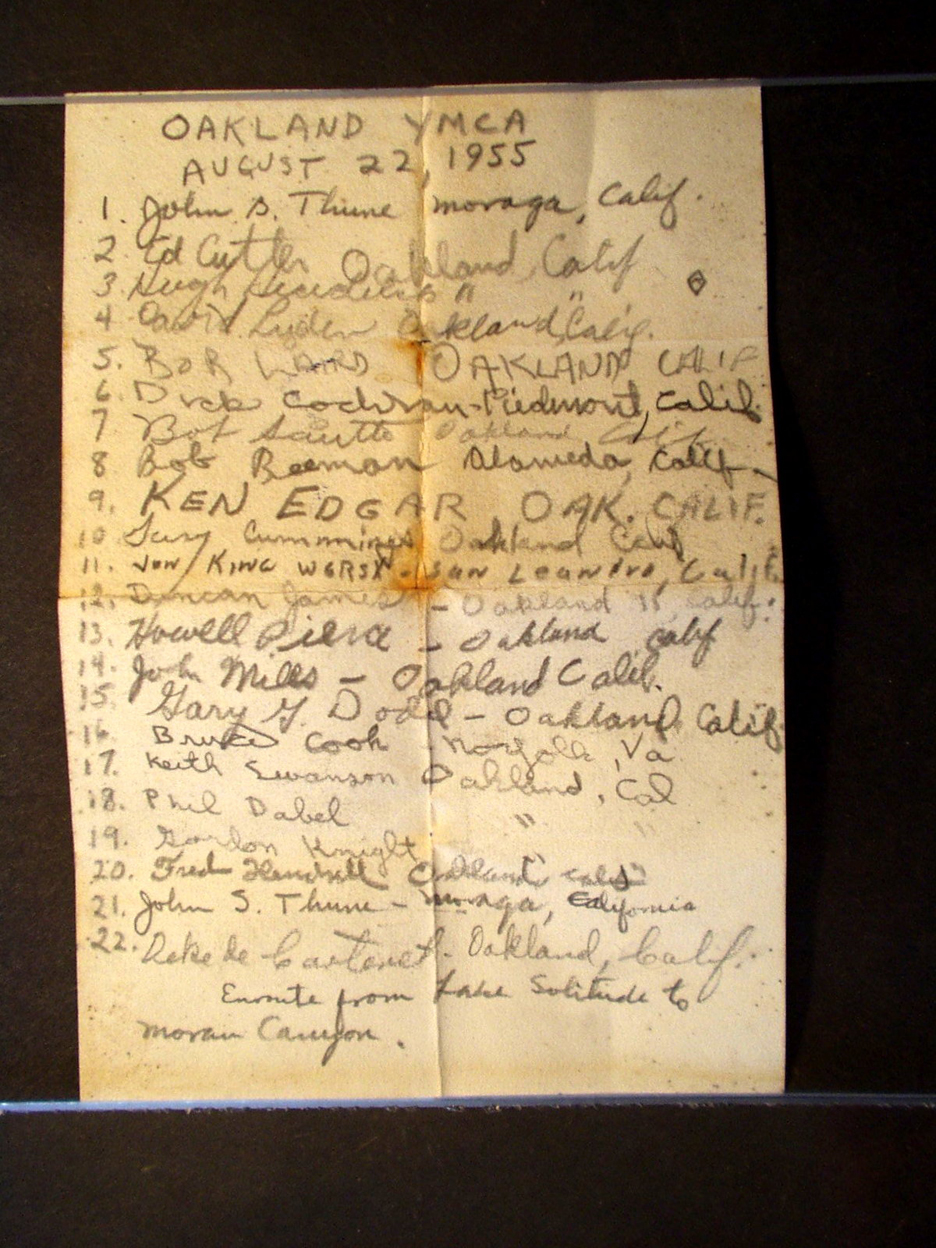 OAKLAND YMCA
AUGUST 22, 1955
1. John S. Thune Moraga, Calif.
2 Ed Cutler Oakland, Calif
3 Hugh " "
4 David Lyden Oakland, Calif.
5. BOB LAIRD OAKLAND CALIF
6. Dick Cochran - Piedmont, Calif.
7 Bob Oakland Calif.
8 Bob Beeman Alameda, Calif.
9. KEN EDGAR OAK. CALIF.
10 Gary Cummings Oakland Calif
11. Jon King - San Leandro, Calif.
12. Duncan James - Oakland 11, Calif.
13. Howell - Oakland Calif
14. John Mills - Oakland Calif.
15. Gary G. Dodd - Oakland, Calif
16 Bruce Cook - Norfolk, Va
17. Keith Swanson Oakland, Cal
18. Phil Dabel " "
19. Gordon Knight " "
20. Fred Oakland Calif
21. John S. Thune - Moraga, California
22. Deke de Oakland, Calif.
Enroute from Lake Solitude to
Moran Canyon.